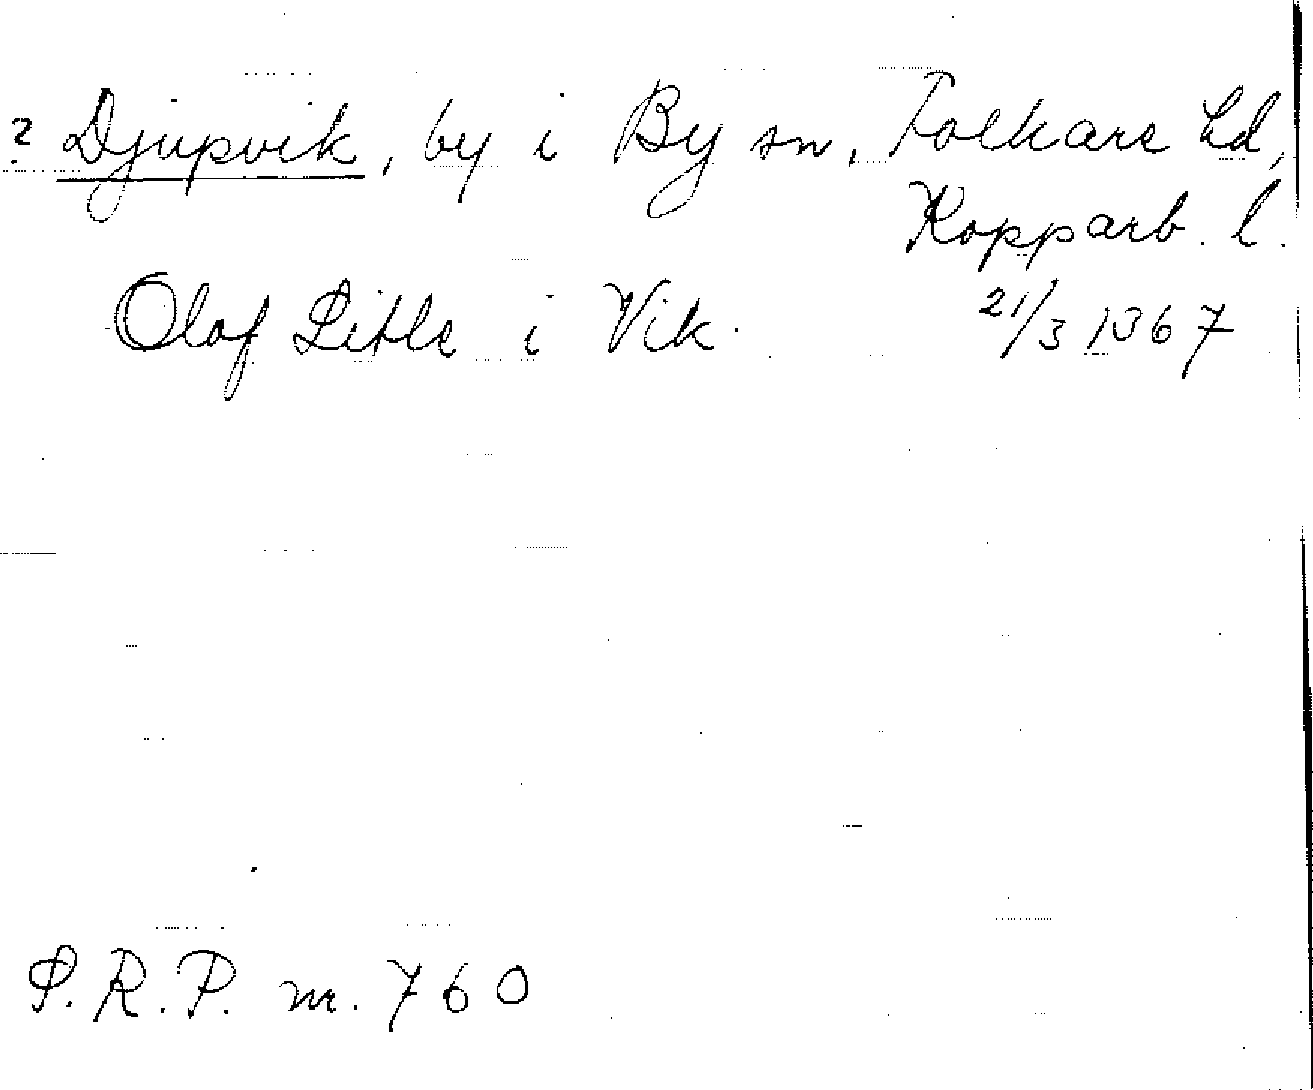 ? Djupvik, by i By sn, Folkare hd,
Kopparb. l.
Olaf Litle i Vik. 21/3 1367
S.R.P. nr. 760